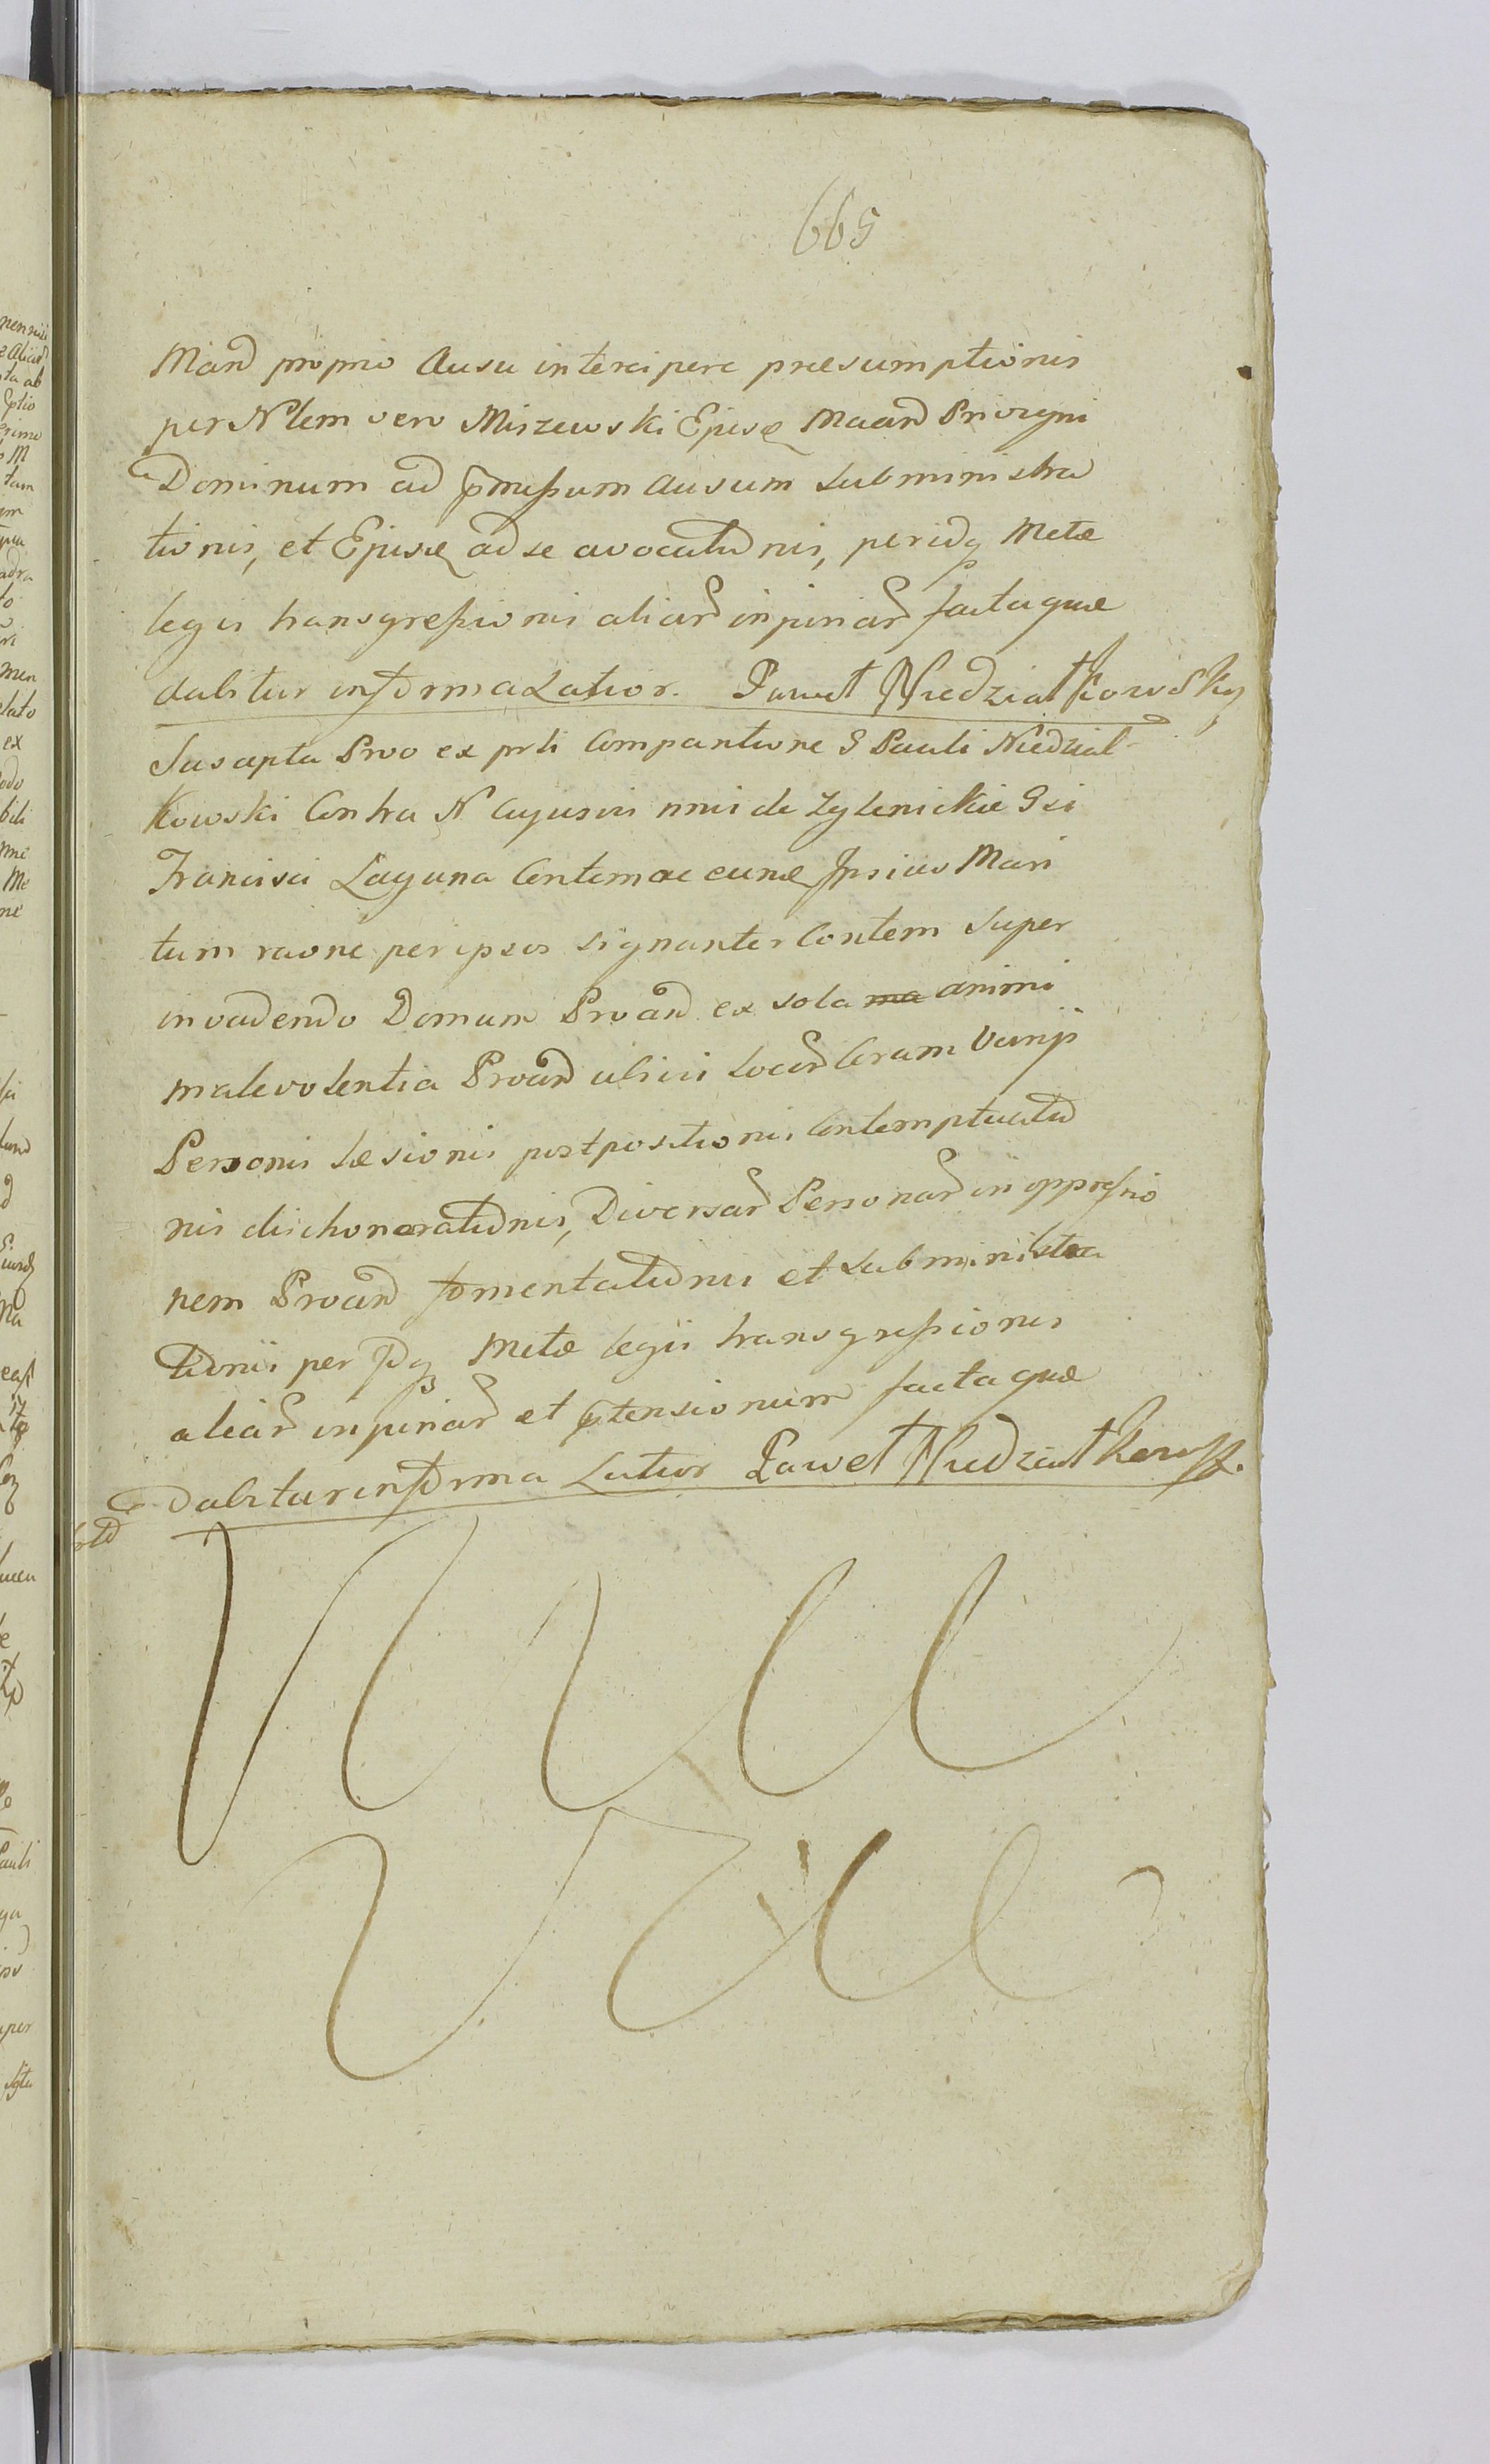 665
Mand proprio Ausu intercipere praesumptionis
per Nlem vero Miszewski Ejusq Maand Privigni
Dominum ad pmissum ausum subministra
tionis, et Ejusq ad se avocationis, per idq Metae
legis transgressionis aliar injuriar facta quae
dabitur informa Latior. Paweł Niedziałkowsky
Suscepta Prvo ex prti Comparitione G Pauli Niedzial-
kowski Contra N
Francisci Laguna Contem ac eunq Ipsius Mari
tum raone per ipsos signanter Contem super
invadendo Domum Prvand ex sola ma animi
malevolentia Prvand Coram Varijs
Personis Laesionis postpositionis Contemptuatio
nis dischonorationis, Diversar Personar in oppressio
nem Prvand fomentationis et subministra
tionis per Idq Metae legis transgressionis
aliar injuriar et ptensionum facta quae
Dabitur in forma Latior Paweł Niedziałkowsk.